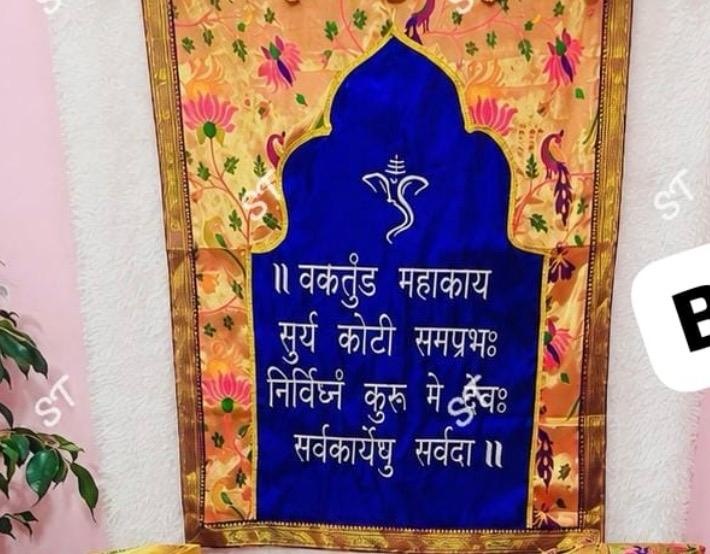 ॥ वकतुंड महाकाय
सुर्य कोटी समप्रभः
निर्विघ्नं कुरू मे देवः
सर्वकार्येषु सर्वदा ॥
B
ST
ST
ST
ST
ST
ST